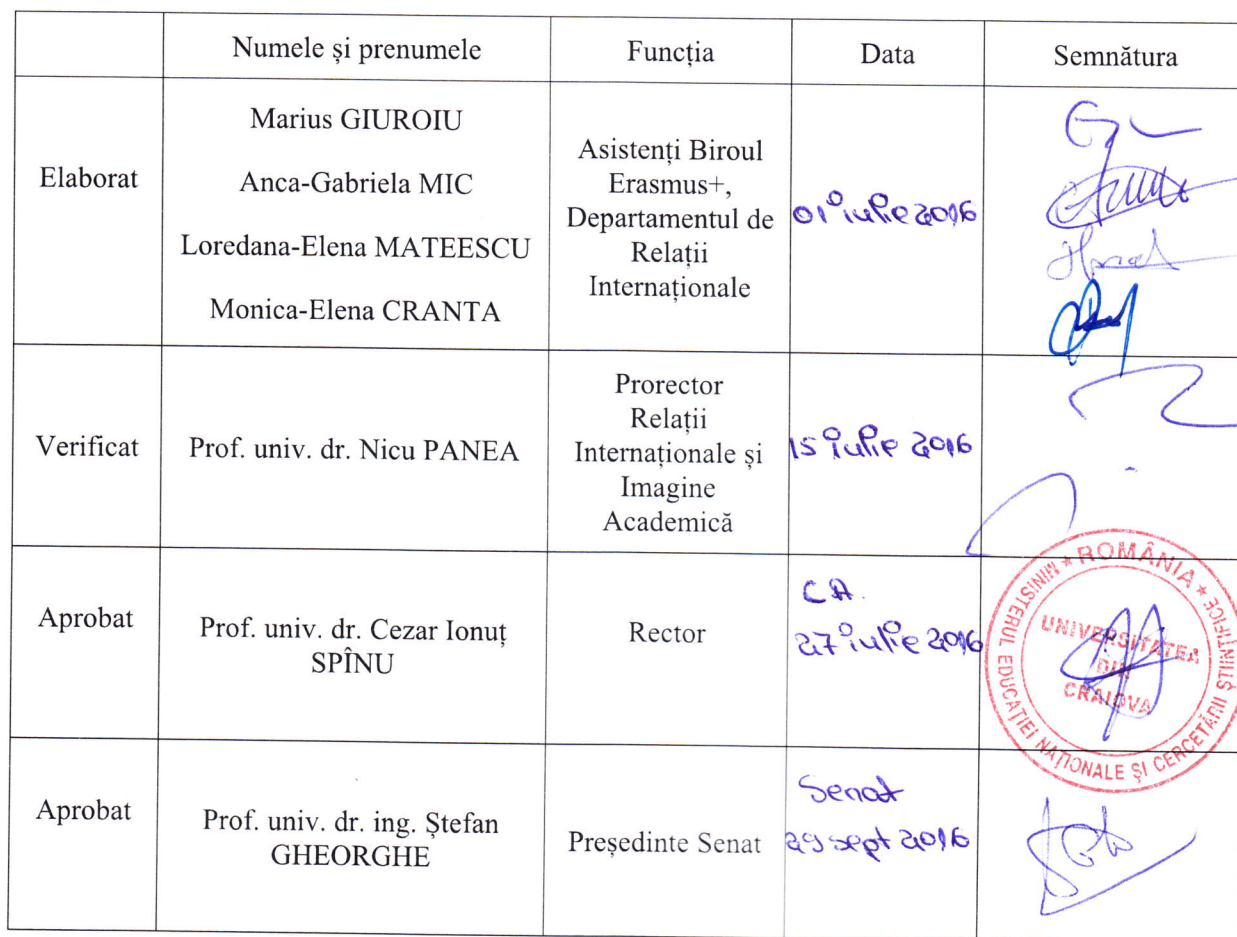 Numele și prenumele
Funcția
Data
Semnătura
Elaborat
Marius GIUROIU
Anca-Gabriela MIC
Loredana-Elena MATEESCU
Monica-Elena CRANTA
Asistenți Biroul
Erasmus+,
Departamentul de
Relații
Internaționale
01 iulie 2016
Verificat
Prof. univ. dr. Nicu PANEA
Prorector
Relații
Internaționale și
Imagine
Academică
15 iulie 2016
Aprobat
Prof. univ. dr. Cezar Ionuț
SPÎNU
Rector
CA
27 iulie 2016
* ROMÂNIA *
MINISTERUL EDUCAȚIEI NAȚIONALE ȘI CERCETĂRII ȘTIINȚIFICE
UNIVERSITATEA
DIN
CRAIOVA
Aprobat
Prof. univ. dr. ing. Ștefan
GHEORGHE
Președinte Senat
Senat
29 sept 2016